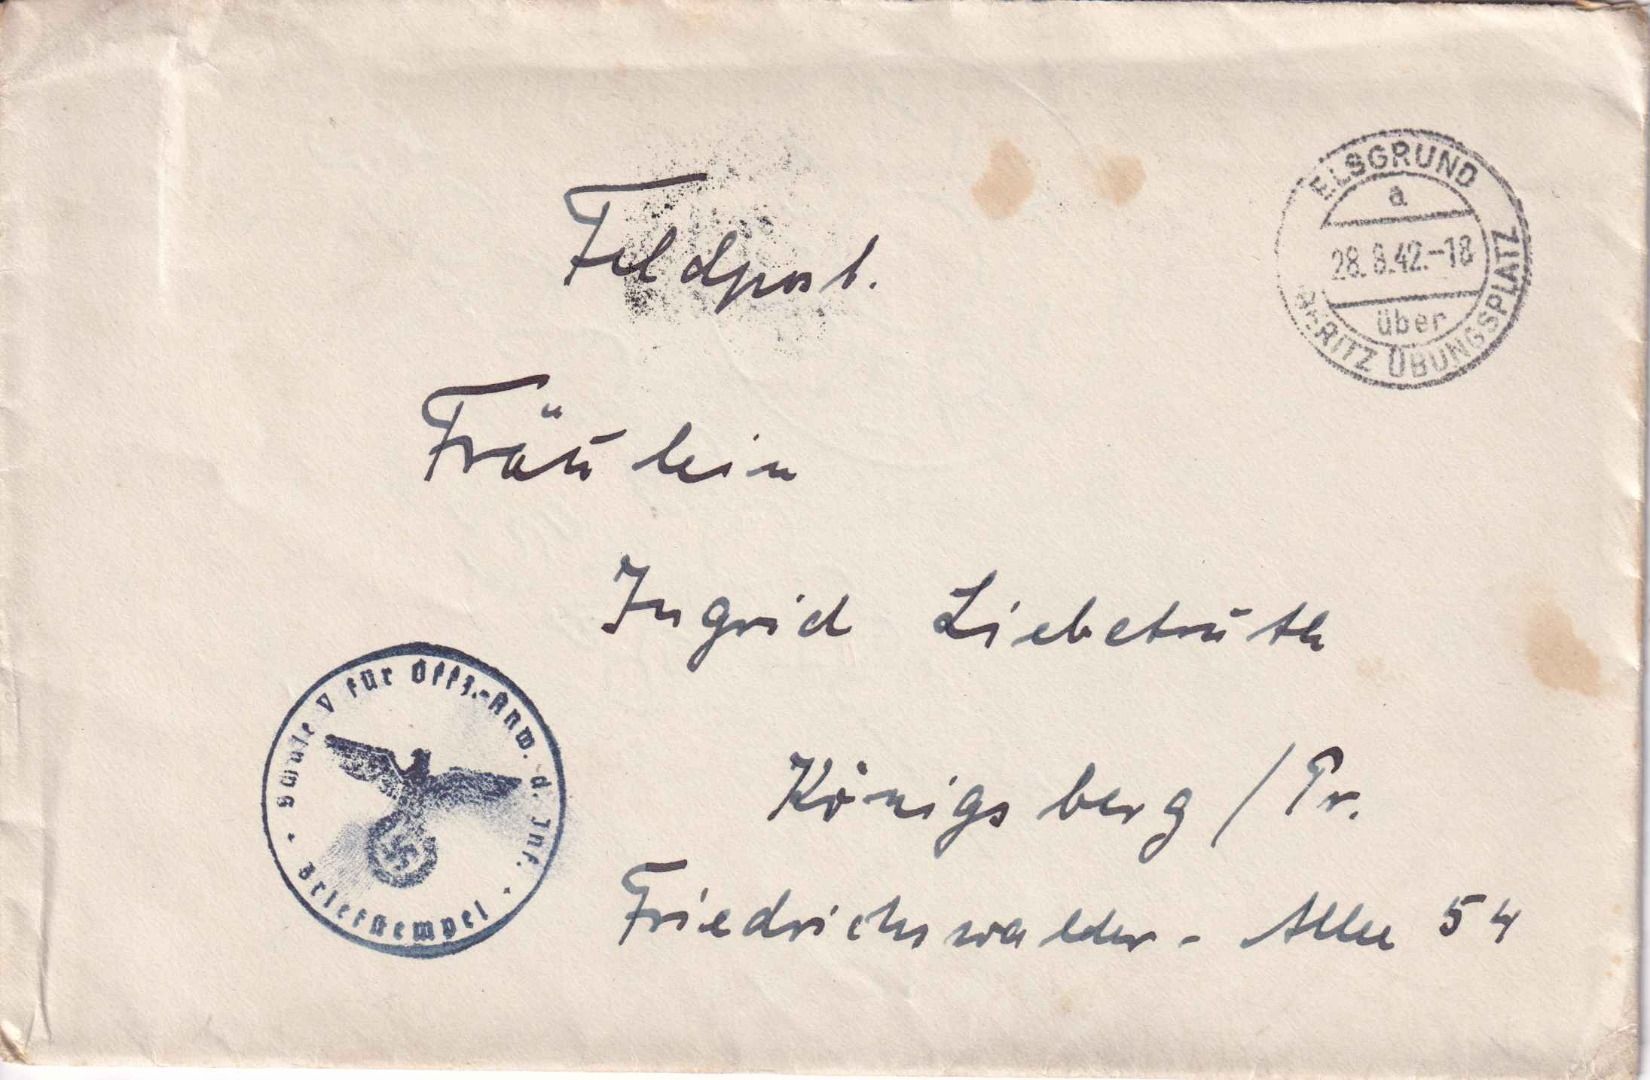 Feldpost.
ELSGRUND
a
28. 8.42.-18
über
ÜBUNGSPLATZ
Fräulein
Ingrid Liebetruth
Königsberg / Pr.
Friedrichswalder - Allee 54
Schule V für Offz.-Anw. d. Inf.
Briefstempel